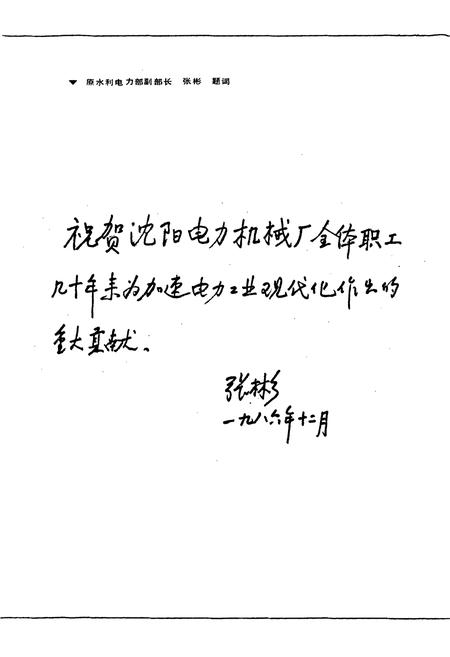 ▼ 原水利电力部副部长 张彬 题词
祝贺沈阳电力机械厂全体职工
几十年来为加速电力工业现代化作出的
重大贡献。
张彬
一九八六年十二月